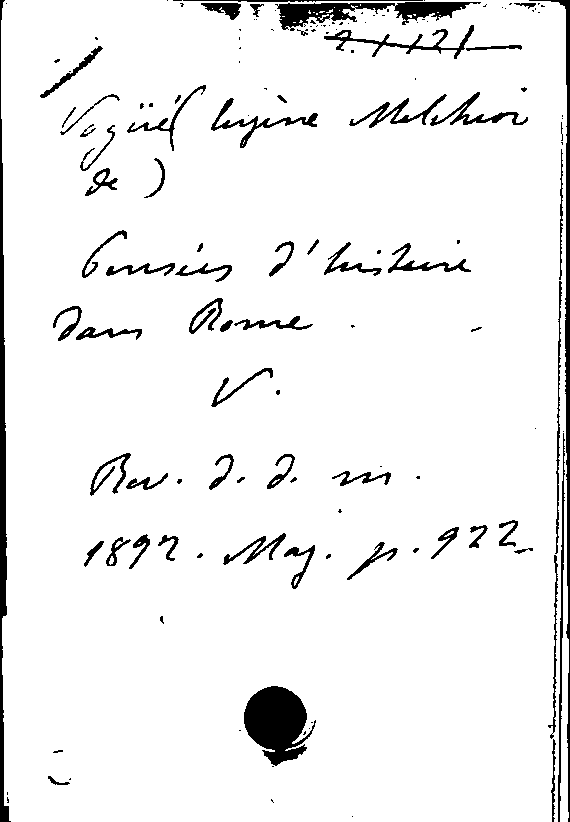 2.1.121
Vogüé (Eugène Melchior
de)
Pensées d'histoire
dans Rome.
V.
Rev. d. d. m.
1892. Maj. p. 922